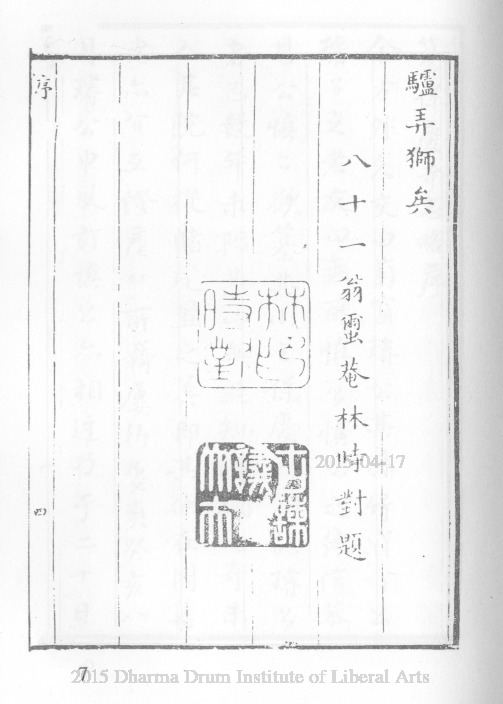 驢弄獅矣
八十一翁蜜菴林時對題
林時對印
序
四
2015-04-17
7
2015 Dharma Drum Institute of Liberal Arts